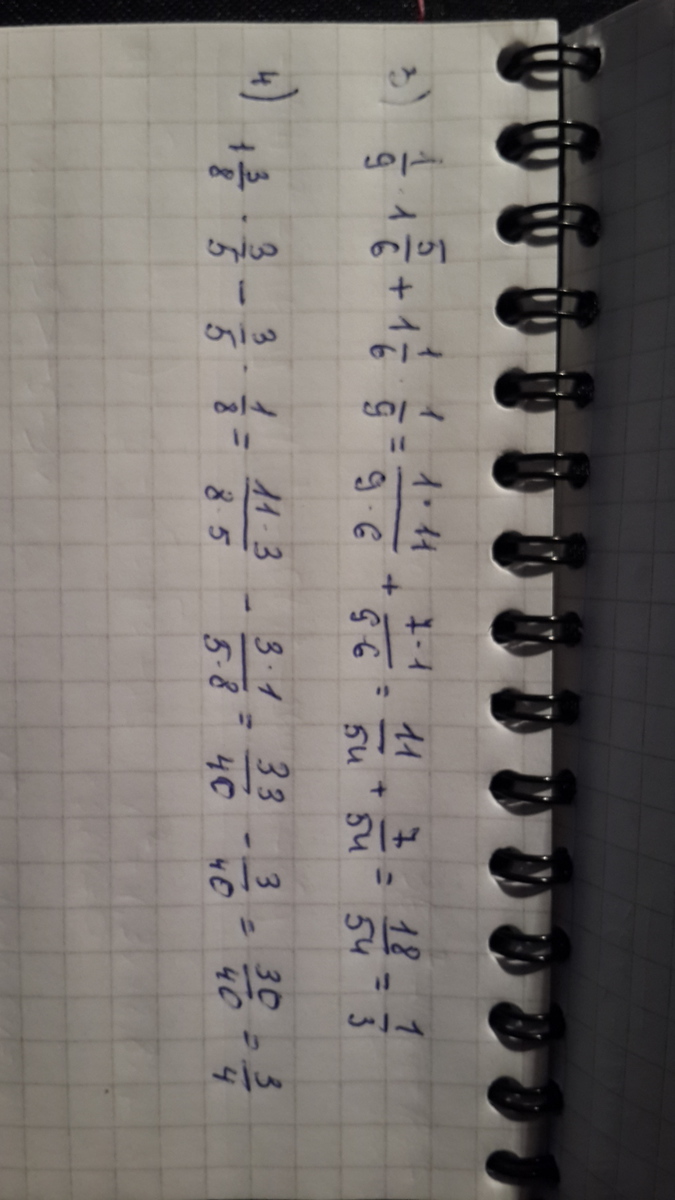 3) 1/9 · 1 5/6 + 1 1/6 · 1/9 = 1·11/9·6 + 7·1/9·6 = 11/54 + 7/54 = 18/54 = 1/3
4) 1 3/8 · 3/5 − 3/5 · 1/8 = 11·3/8·5 − 3·1/5·8 = 33/40 - 3/40 = 30/40 = 3/4